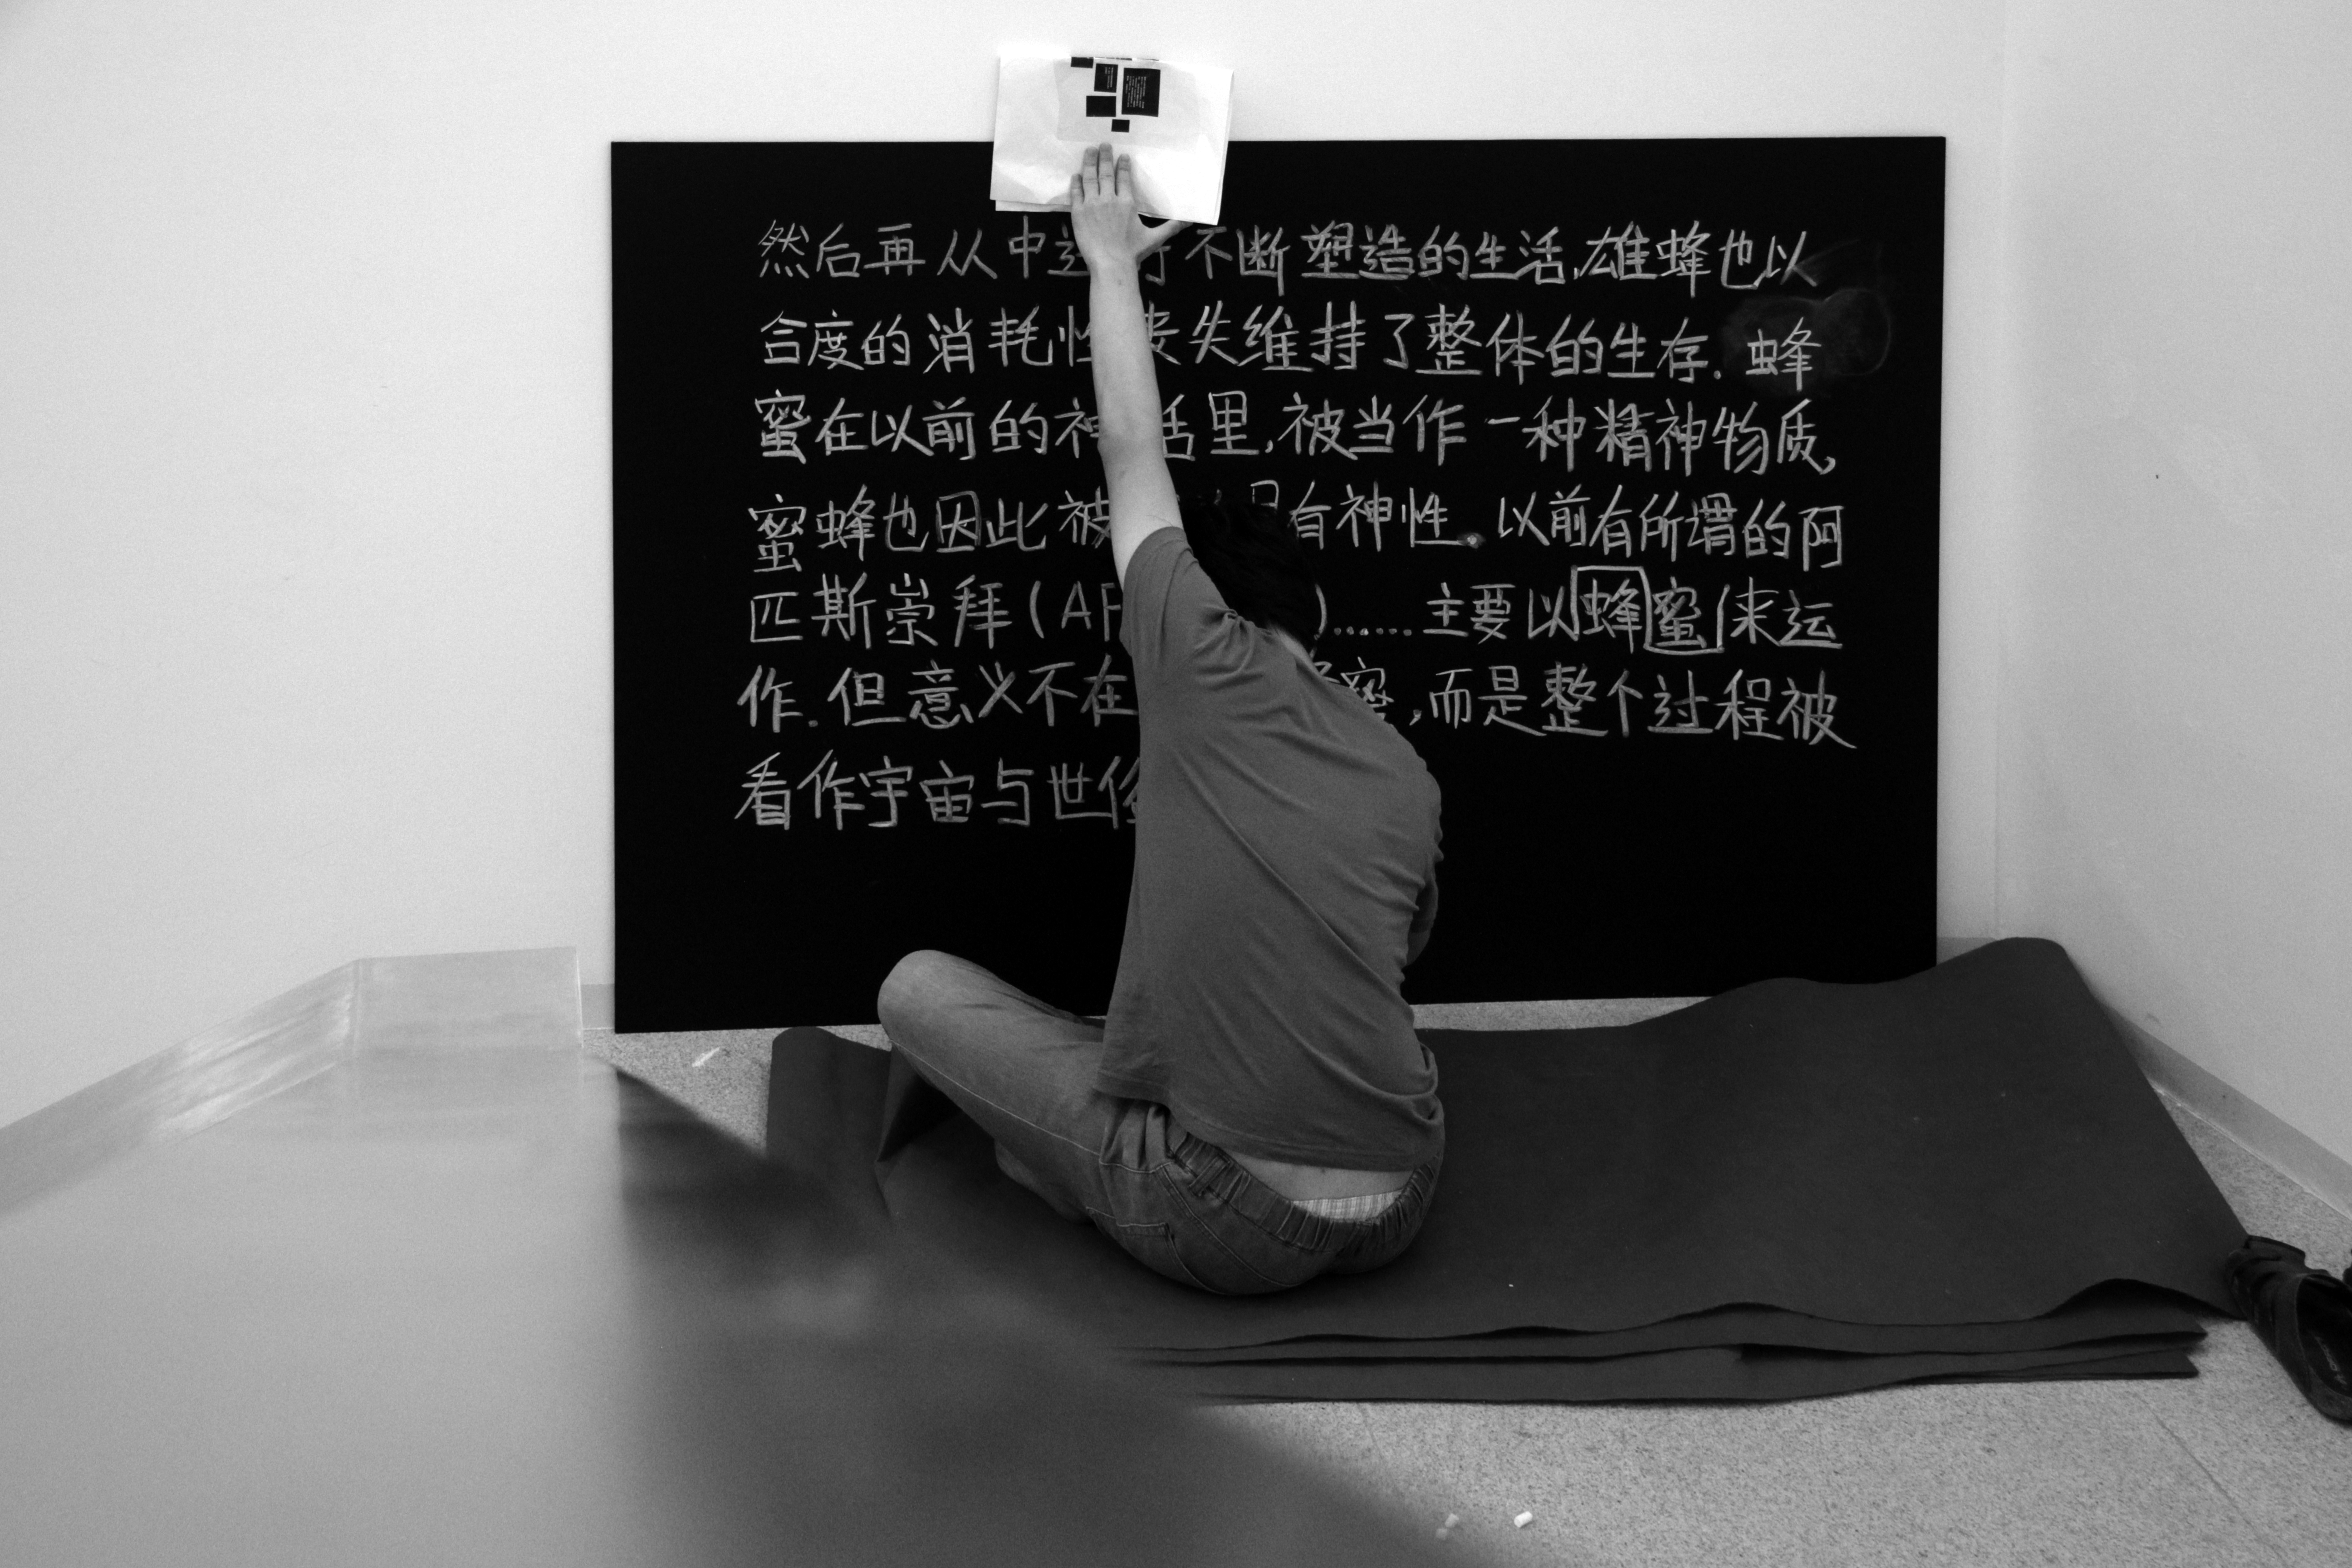 然后再从中进行不断塑造的生活,雄蜂也以
合度的消耗性丧失维持了整体的生存.蜂
蜜在以前的神话里,被当作一种精神物质,
蜜蜂也因此被 具有神性。以前有所谓的阿
匹斯崇拜(AP )……主要以蜂蜜来运
作.但意义不在 蜜,而是整个过程被
看作宇宙与世俗